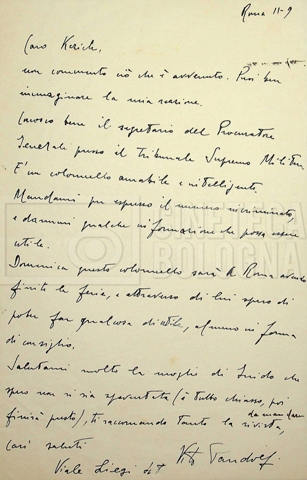 Roma 11-9
Caro Kezich,
non commento ciò che è avvenuto. Puoi ben
immaginare la mia reazione.
Conosco bene il segretario del Procuratore
Generale presso il Tribunale Supremo Militare.
E' un colonnello amabile e intelligente.
Mandami per espresso il numero incriminato,
e dammi qualche informazione che possa essere
utile.
Domenica questo colonnello sarà a Roma avendo
finito le ferie, e attraverso di lui spero di
poter far qualcosa di utile, almeno in forma
di consiglio.
Salutami molto la moglie di Guido che
spero non si sia spaventata (è tutto chiasso, poi
finirà presto), ti raccomando tanto la rivista,
da mandarmi
cari saluti
Vito Pandolfi
Viale Liegi
CINETECA
BOLOGNA